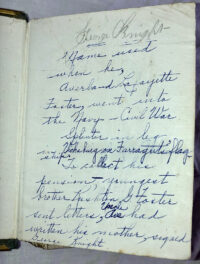 George Knight
Name used
when he,
Averland Lafayette
Foster, went into
the Navy - Civil War
Splinter in leg
when on Farragut's flag
ship
To collect his
pension, youngest
brother S Foster
sent letters, Uncle had
written his mother, signed
George Knight